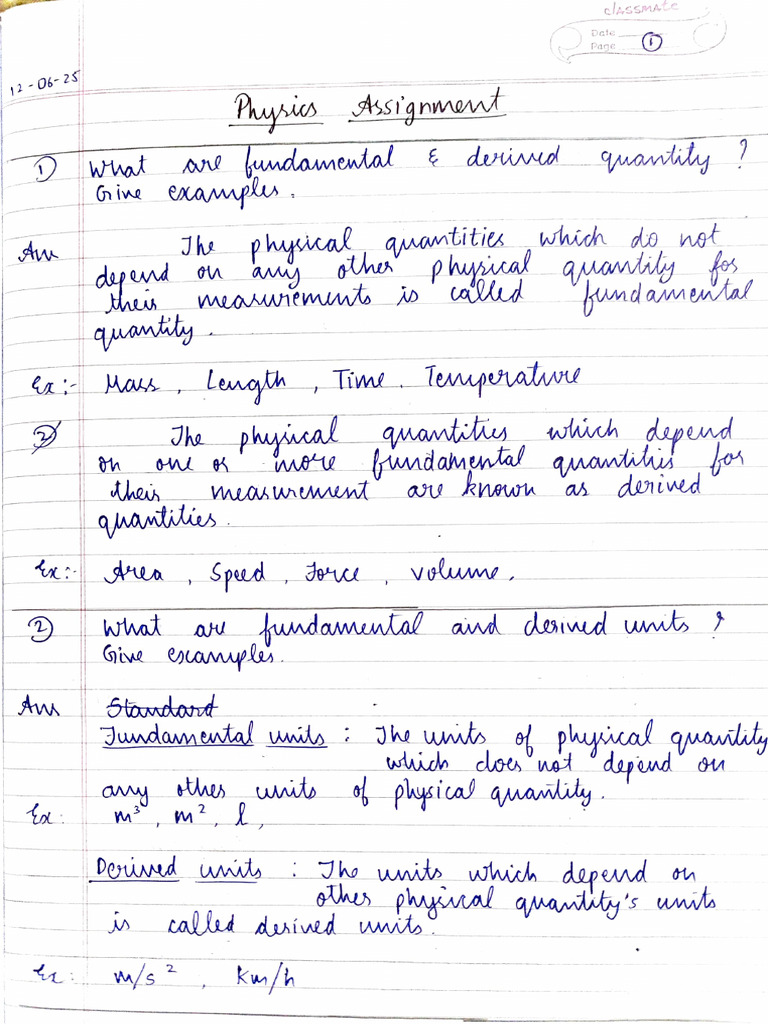 classmate
Date
Page 1
12-06-25
Physics Assignment
① What are fundamental & derived quantity ?
Give examples.
Ans The physical quantities which do not
depend on any other physical quantity for
their measurements is called fundamental
quantity.
Ex:- Mass, Length, Time, Temperature
② The physical quantities which depend
on one or more fundamental quantities for
their measurement are known as derived
quantities.
Ex:- Area, Speed, Force, volume.
② What are fundamental and derived units ?
Give examples.
Ans Standard
Fundamental units : The units of physical quantity
which does not depend on
any other units of physical quantity.
Ex: m³, m², l,
Derived units : The units which depend on
other physical quantity's units
is called derived units.
Ex: m/s², km/h